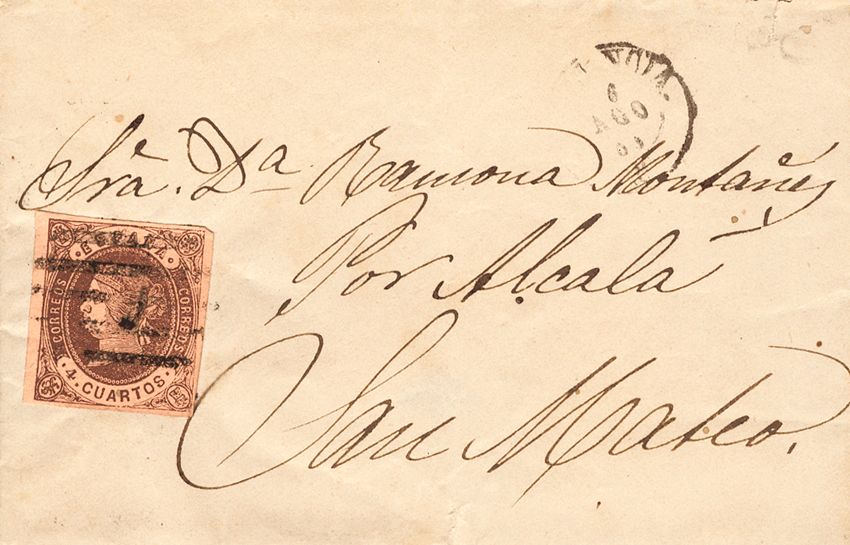 6
AGO
Sra. Da. Ramona Montañés
Por Alcalá
San Mateo.
ESPAÑA
CORREOS
CORREOS
4 CUARTOS